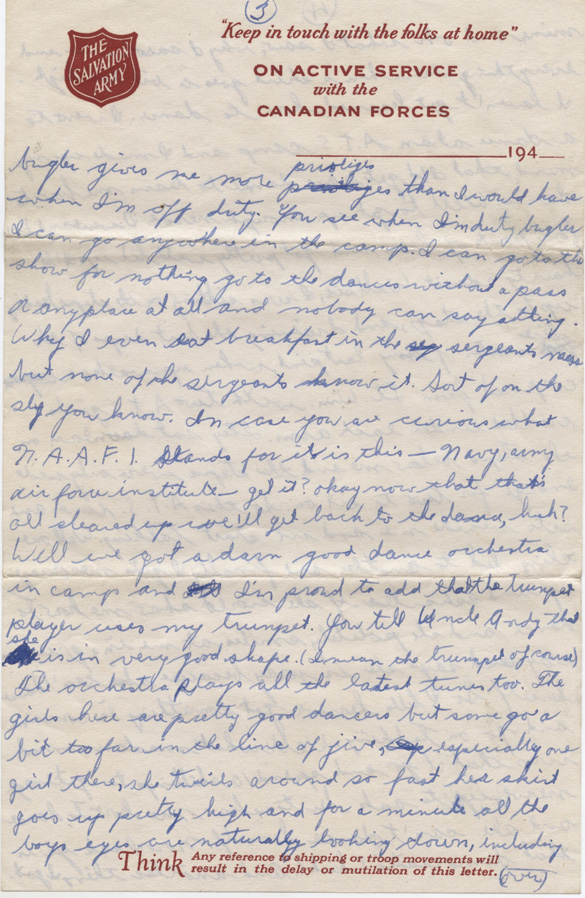 3
"Keep in touch with the folks at home"
THE
SALVATION
ARMY
ON ACTIVE SERVICE
with the
CANADIAN FORCES
194
bugler gives me more privliges than I would have
when I'm off duty. You see when I'm duty bugler
I can go anywhere in the camp. I can go to the
show for nothing go to the dances without a pass
or anyplace at all and nobody can say atting.
Why I even eat breakfast in the sergeants mess
but none of the sergeants know it. Sort of on the
sly you know. In case you are curious what
N.A.A.F.I. stands for it is this — Navy, army
air force institute — get it? okay now that that's
all cleared up we'll get back to the dance, huh?
Well we got a darn good dance orchestra
in camp and I'm proud to add that the trumpet
player uses my trumpet. You tell Uncle Andy that
she is in very good shape. (I mean the trumpet of course)
The orchestra plays all the latest tunes too. The
girls here are pretty good dancers but some go a
bit too far in the line of jive, especially one
girl there, she twirls around so fast her skirt
goes up pretty high and for a minute all the
boys eyes are naturally looking down, including
Think Any reference to shipping or troop movements will
result in the delay or mutilation of this letter. (over)